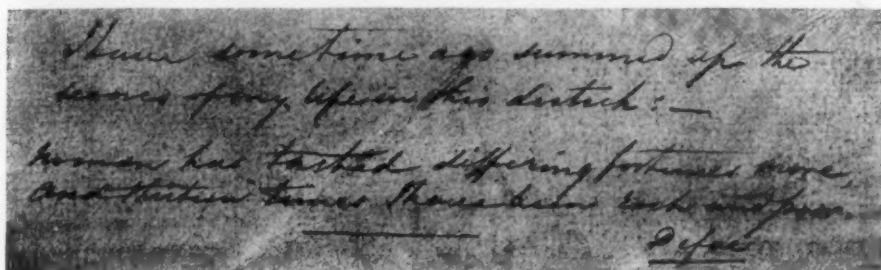 I have sometime ago summed up the
scenes of my life in this distich : —
no man has tasted differing fortunes more,
and thirteen times I have been rich and poor.
Defoe